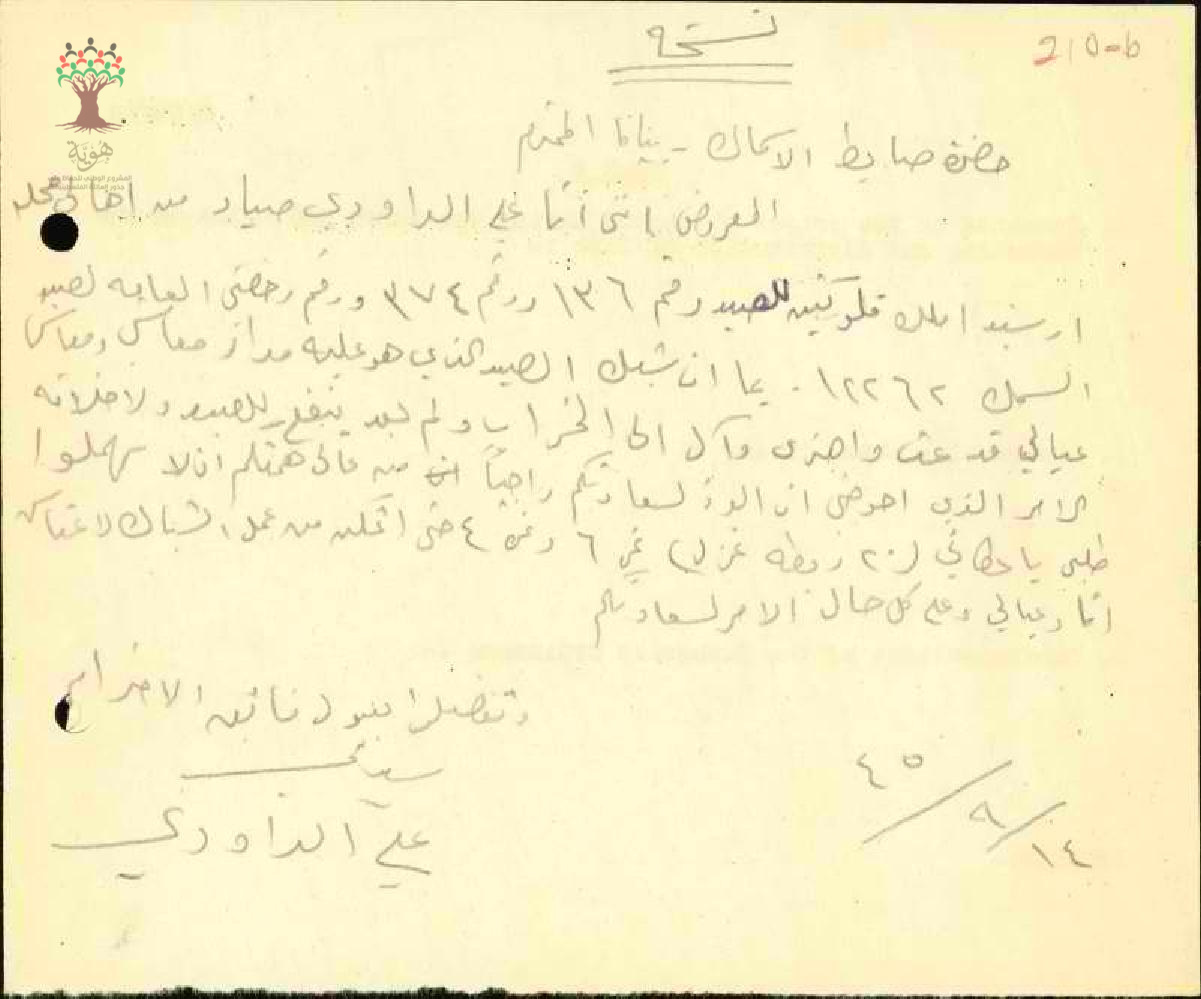 نسخه
210-b
هوية
حضرة ضابط الاسماك - بيافا المحترم
المعروض انني انا علي الداودي صياد من اهالي محلة
ارشيد املك فلوكتين للصيد رقم ١٣٦ ورقم ٣٧٤ ورقم رخصتي العايده لصيد
السمك ١٢٢٦٢ - بما ان شبك الصيد الذي هو عليه مدار معاشي ومعاش
عيالي قد عتق واهترى وآل الى الخراب ولم يعد ينفع للصيد ولا خلافه
الامر الذي احوجني ان الوذ لسعادتكم راجياً من عالي همتكم ان لا تهملوا
طلبي باعطائي (٢٠ ربطه غزل) نمرة ٦ ونمرة ٤ حتى اتمكن من عمل الشباك لاعتاش
انا وعيالي وعلى كل حال الامر لسعادتكم
وتفضلوا بقبول فائق الاحترام
سيدي
علي الداودي
١٤/٩/٤٥